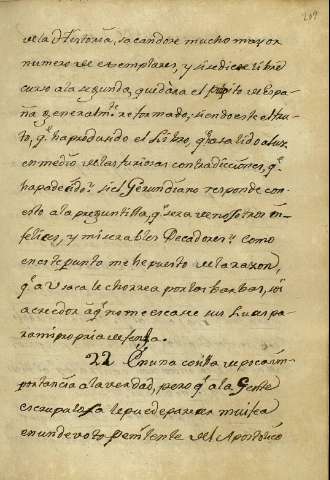 209
de la Historia, sacandose mucho mayor
numero de exemplares, y si se diese libre
curso a la segunda, quedara el pulpito de Espa-
ña generalm.te reformado; siendo este el fru-
to, q.e ha producido el Libro, q.e ha salido a luz
en medio de las furiosas contradicciones, q.e
ha padecido. si el Gerundiano responde con
esto a la preguntilla, q.e sera de nosotros in-
felices, y miserables Pecadores? Como
en este punto me ha puesto de la razon,
q.e a Usaca le chorrea por las barbas, soi
acrehedor a q.e no me escasee sus luces pa-
ra mi propria defensa.
22 En una cosilla de poca im-
portancia a la verdad, pero q.e a la Gente
escrupulosa le puede parecer mui fea
en un devoto penitente del Apostolico